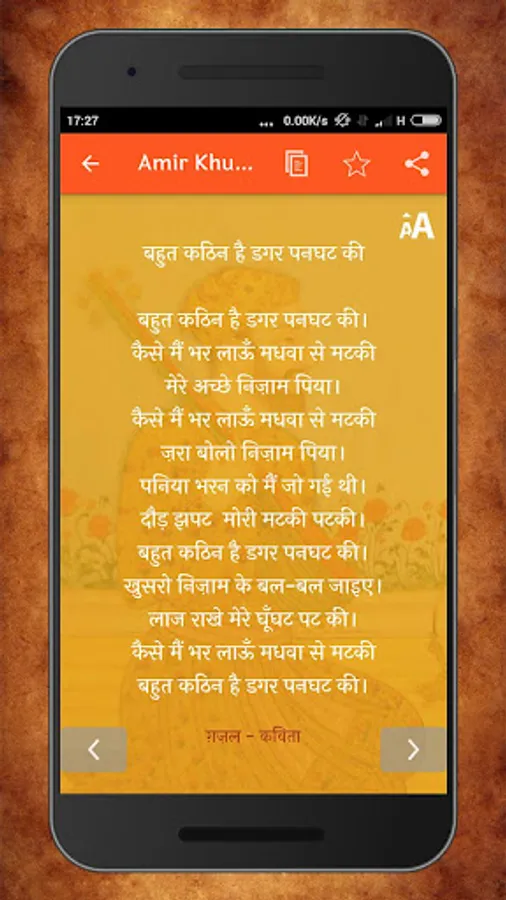 17:27 ... 0.00K/s H
Amir Khu...
AA
बहुत कठिन है डगर पनघट की
बहुत कठिन है डगर पनघट की।
कैसे मैं भर लाऊँ मधवा से मटकी
मेरे अच्छे निज़ाम पिया।
कैसे मैं भर लाऊँ मधवा से मटकी
ज़रा बोलो निज़ाम पिया।
पनिया भरन को मैं जो गई थी।
दौड़ झपट मोरी मटकी पटकी।
बहुत कठिन है डगर पनघट की।
खुसरो निज़ाम के बल-बल जाइए।
लाज राखे मेरे घूँघट पट की।
कैसे मैं भर लाऊँ मधवा से मटकी
बहुत कठिन है डगर पनघट की।
ग़ज़ल - कविता